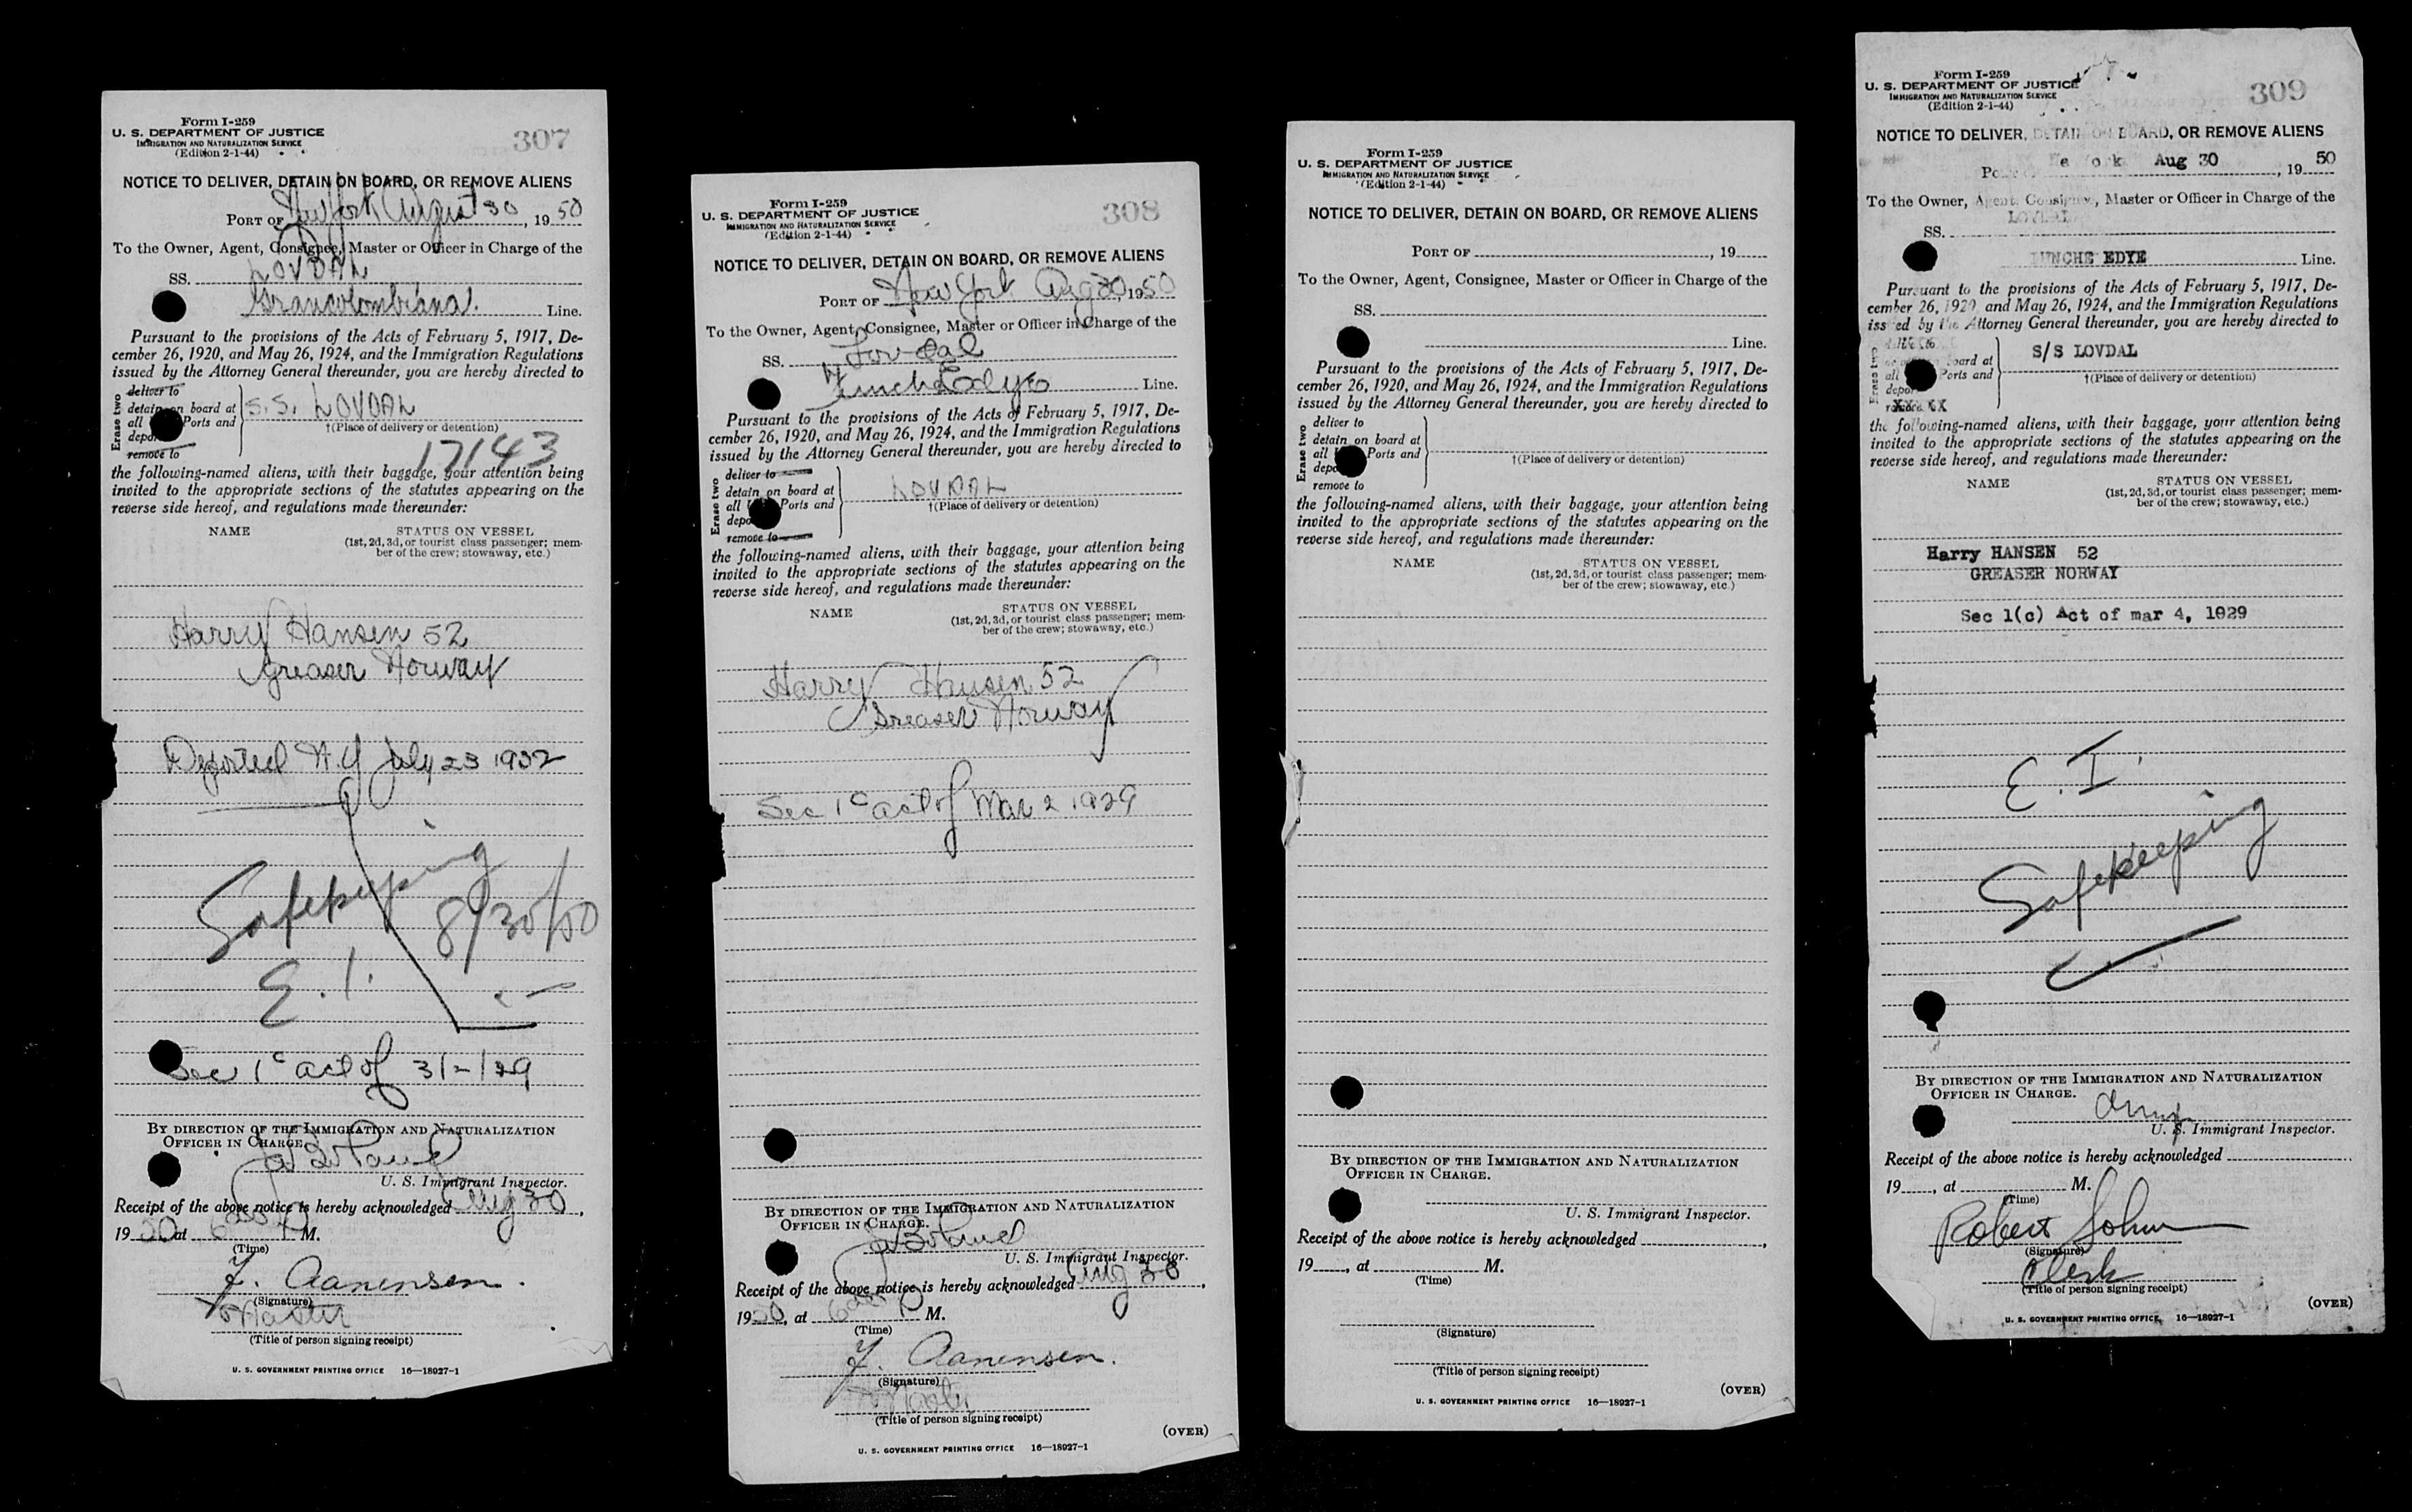 Form I-259
U. S. DEPARTMENT OF JUSTICE
IMMIGRATION AND NATURALIZATION SERVICE
(Edition 2-1-44)
307
NOTICE TO DELIVER, DETAIN ON BOARD, OR REMOVE ALIENS
PORT OF New York August 30, 1950
To the Owner, Agent, Consignee, Master or Officer in Charge of the
SS. LOVDAL
Grancolombiana. Line.
Pursuant to the provisions of the Acts of February 5, 1917, De-
cember 26, 1920, and May 26, 1924, and the Immigration Regulations
issued by the Attorney General thereunder, you are hereby directed to
Erase two
deliver to
detain on board at
all Ports and
S.S. LOVDAL
†(Place of delivery or detention)
remove to
17143
the following-named aliens, with their baggage, your attention being
invited to the appropriate sections of the statutes appearing on the
reverse side hereof, and regulations made thereunder:
NAME STATUS ON VESSEL
(1st, 2d, 3d, or tourist class passenger; mem-
ber of the crew; stowaway, etc.)
Harry Hansen 52
Greaser Norway
Deported N.Y July 23 1932
Safekeeping
8/30/50
E. I.
Sec 1c act of 3/2/29
BY DIRECTION OF THE IMMIGRATION AND NATURALIZATION
OFFICER IN CHARGE.
U. S. Immigrant Inspector.
Receipt of the above notice is hereby acknowledged Aug 30,
1950 at 6 P M.
(Time)
F. Aanensen.
(Signature)
Master
(Title of person signing receipt)
U. S. GOVERNMENT PRINTING OFFICE 16—18927-1
Form I-259
U. S. DEPARTMENT OF JUSTICE
IMMIGRATION AND NATURALIZATION SERVICE
(Edition 2-1-44)
308
NOTICE TO DELIVER, DETAIN ON BOARD, OR REMOVE ALIENS
PORT OF New York Aug 30, 1950
To the Owner, Agent, Consignee, Master or Officer in Charge of the
SS. Lovdal
Funch Edye Line.
Pursuant to the provisions of the Acts of February 5, 1917, De-
cember 26, 1920, and May 26, 1924, and the Immigration Regulations
issued by the Attorney General thereunder, you are hereby directed to
Erase two
deliver to
detain on board at
all Ports and
LOVDAL
†(Place of delivery or detention)
remove to
the following-named aliens, with their baggage, your attention being
invited to the appropriate sections of the statutes appearing on the
reverse side hereof, and regulations made thereunder:
NAME STATUS ON VESSEL
(1st, 2d, 3d, or tourist class passenger; mem-
ber of the crew; stowaway, etc.)
Harry Hansen 52
Greaser Norway
Sec 1c act of Mar 2 1929
BY DIRECTION OF THE IMMIGRATION AND NATURALIZATION
OFFICER IN CHARGE.
U. S. Immigrant Inspector.
Receipt of the above notice is hereby acknowledged Aug 30,
1950, at 6 P M.
(Time)
F. Aanensen.
(Signature)
Master
(Title of person signing receipt)
(OVER)
U. S. GOVERNMENT PRINTING OFFICE 16—18927-1
Form I-259
U. S. DEPARTMENT OF JUSTICE
IMMIGRATION AND NATURALIZATION SERVICE
(Edition 2-1-44)
NOTICE TO DELIVER, DETAIN ON BOARD, OR REMOVE ALIENS
PORT OF , 19
To the Owner, Agent, Consignee, Master or Officer in Charge of the
SS.
Line.
Pursuant to the provisions of the Acts of February 5, 1917, De-
cember 26, 1920, and May 26, 1924, and the Immigration Regulations
issued by the Attorney General thereunder, you are hereby directed to
Erase two
deliver to
detain on board at
all Ports and
†(Place of delivery or detention)
remove to
the following-named aliens, with their baggage, your attention being
invited to the appropriate sections of the statutes appearing on the
reverse side hereof, and regulations made thereunder:
NAME STATUS ON VESSEL
(1st, 2d, 3d, or tourist class passenger; mem-
ber of the crew; stowaway, etc.)
BY DIRECTION OF THE IMMIGRATION AND NATURALIZATION
OFFICER IN CHARGE.
U. S. Immigrant Inspector.
Receipt of the above notice is hereby acknowledged ,
19 , at M.
(Time)
(Signature)
(Title of person signing receipt)
(OVER)
U. S. GOVERNMENT PRINTING OFFICE 16—18927-1
Form I-259
U. S. DEPARTMENT OF JUSTICE
IMMIGRATION AND NATURALIZATION SERVICE
(Edition 2-1-44)
309
NOTICE TO DELIVER, DETAIN ON BOARD, OR REMOVE ALIENS
Aug 30, 1950
To the Owner, Agent, Consignee, Master or Officer in Charge of the
SS. LOVDAL
FUNCHE EDYE Line.
Pursuant to the provisions of the Acts of February 5, 1917, De-
cember 26, 1920, and May 26, 1924, and the Immigration Regulations
issued by the Attorney General thereunder, you are hereby directed to
Erase two
board at
all Ports and
S/S LOVDAL
†(Place of delivery or detention)
the following-named aliens, with their baggage, your attention being
invited to the appropriate sections of the statutes appearing on the
reverse side hereof, and regulations made thereunder:
NAME STATUS ON VESSEL
(1st, 2d, 3d, or tourist class passenger; mem-
ber of the crew; stowaway, etc.)
Harry HANSEN 52
GREASER NORWAY
Sec 1(c) Act of mar 4, 1929
E. I.
Safekeeping
BY DIRECTION OF THE IMMIGRATION AND NATURALIZATION
OFFICER IN CHARGE.
U. S. Immigrant Inspector.
Receipt of the above notice is hereby acknowledged
19 , at M.
(Time)
Robert
(Signature)
Clerk
(Title of person signing receipt)
(OVER)
U. S. GOVERNMENT PRINTING OFFICE 16—18927-1